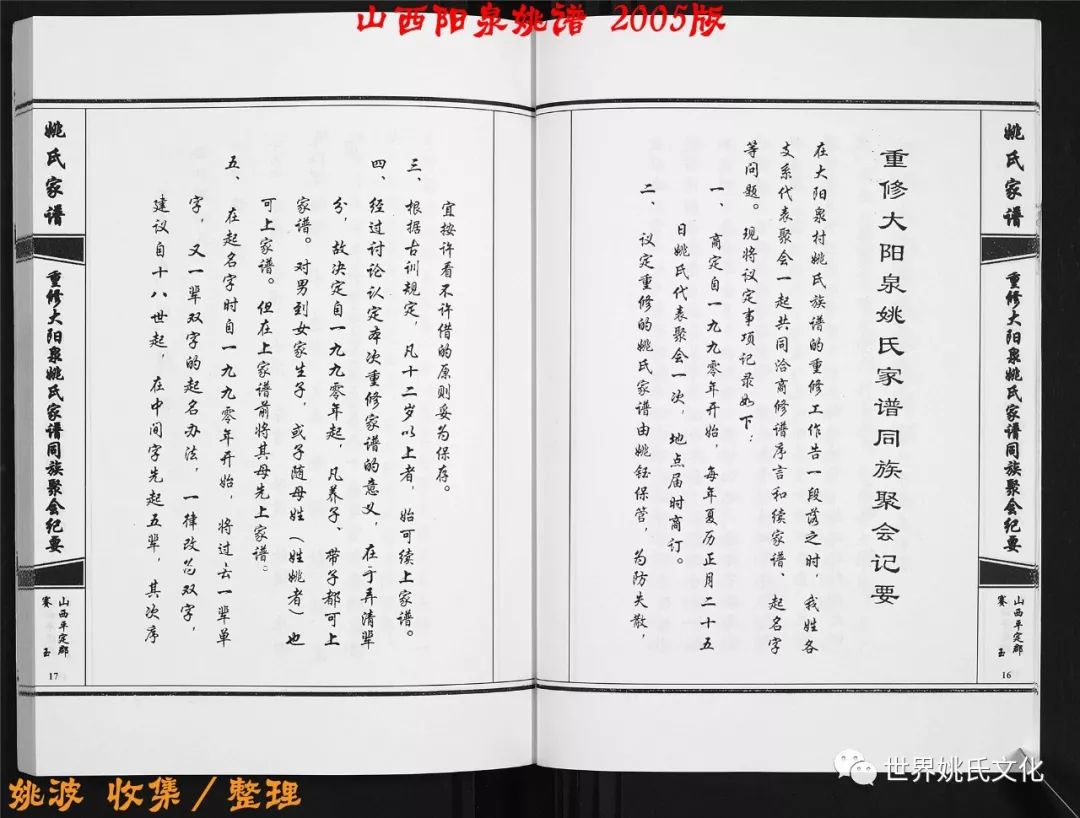 山西阳泉姚谱 2005版
姚氏家谱
重修大阳泉姚氏家谱同族聚会纪要
山西平定郡
赛玉
16
重修大阳泉姚氏家谱同族聚会记要
在大阳泉村姚氏族谱的重修工作告一段落之时，我姓各
支系代表聚会一起共同洽商修谱序言和续家谱、起名字
等问题。现将议定事项记录如下：
一、商定自一九九零年开始，每年夏历正月二十五
日姚氏代表聚会一次，地点届时商订。
二、议定重修的姚氏家谱由姚钰保管，为防失散，
宜按许看不许借的原则妥为保存。
三、根据古训规定，凡十二岁以上者，始可续上家谱。
四、经过讨论认定本次重修家谱的意义，在于弄清辈
分，故决定自一九九零年起，凡养子、带子都可上
家谱。对男到女家生子，或子随母姓（姓姚者）也
可上家谱。但在上家谱前将其母先上家谱。
五、在起名字时自一九九零年开始，将过去一辈单
字，又一辈双字的起名办法，一律改为双字，
建议自十八世起，在中间字先起五辈，其次序
姚氏家谱
重修大阳泉姚氏家谱同族聚会纪要
山西平定郡
赛玉
17
姚波 收集／整理
世界姚氏文化